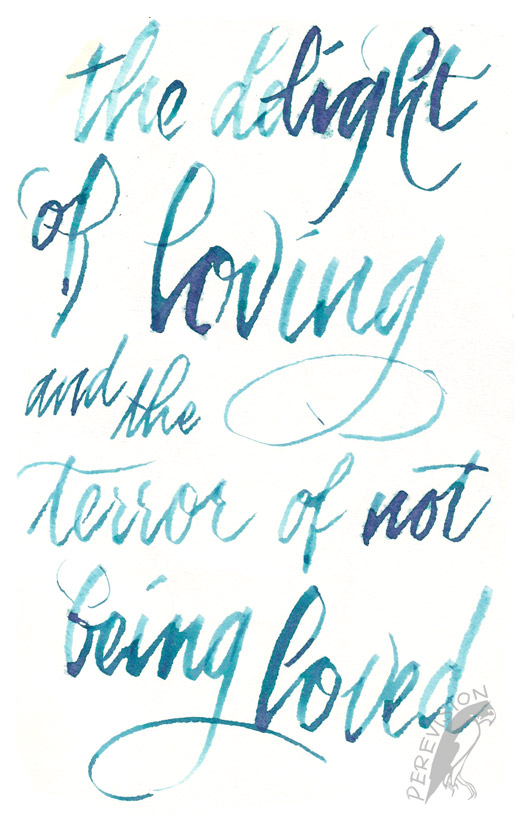 the delight
of loving
and the
terror of not
being loved
PEREVISION